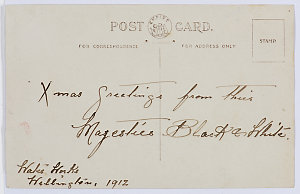 POST CARD.
FOR CORRESPONDENCE
FOR ADDRESS ONLY
STAMP
Xmas greetings from their
Majesties Black & White.
Water Works
Wellington, 1912